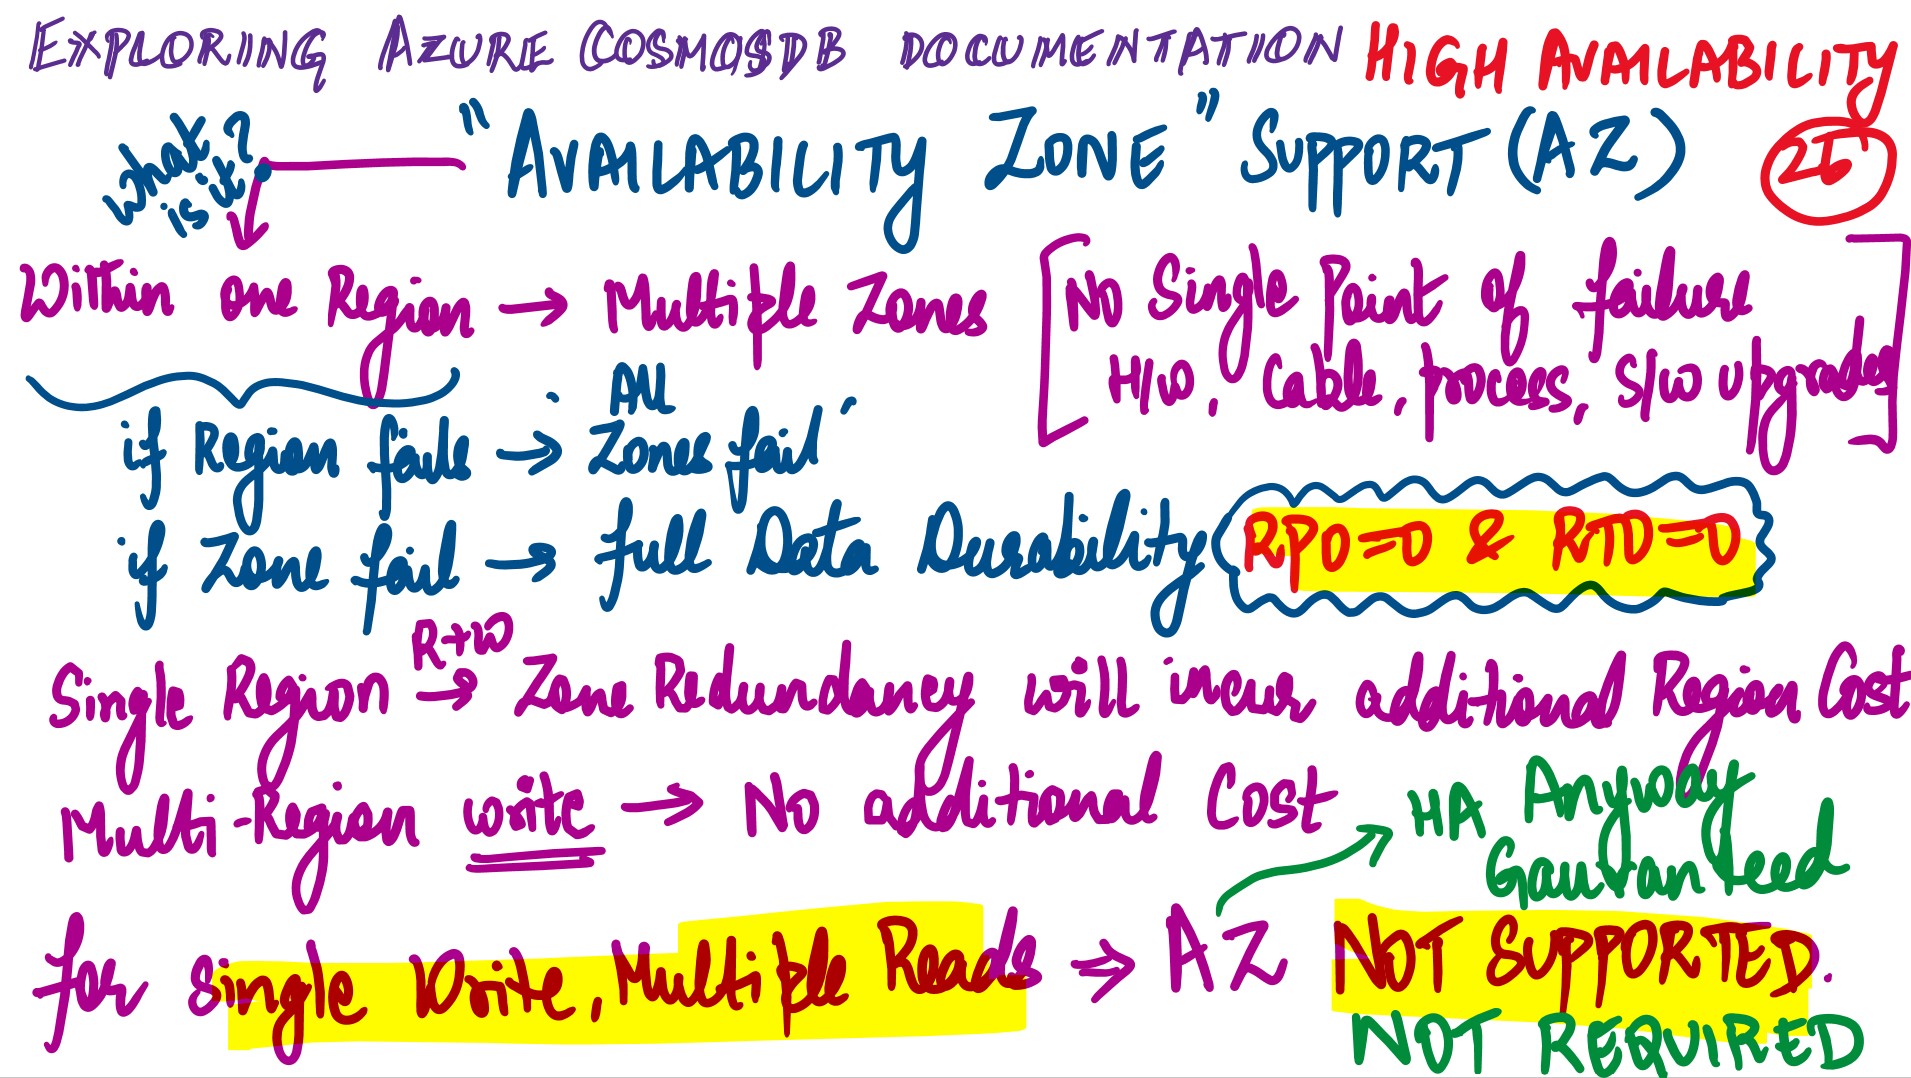 EXPLORING AZURE COSMOSDB DOCUMENTATION HIGH AVAILABILITY
what is it? "AVAILABILITY ZONE" SUPPORT (AZ)
Within one Region → Multiple Zones
[No Single Point of failure
H/W, Cable, process, S/W upgrades]
if Region fails → All Zones fail
if Zone fail → full Data Durability RPO=0 & RTO=0
Single Region R+W → Zone Redundancy will incur additional Region Cost
Multi-Region write → No additional Cost
HA Anyway
Gauranteed
for single Write, Multiple Reads → AZ NOT SUPPORTED.
NOT REQUIRED